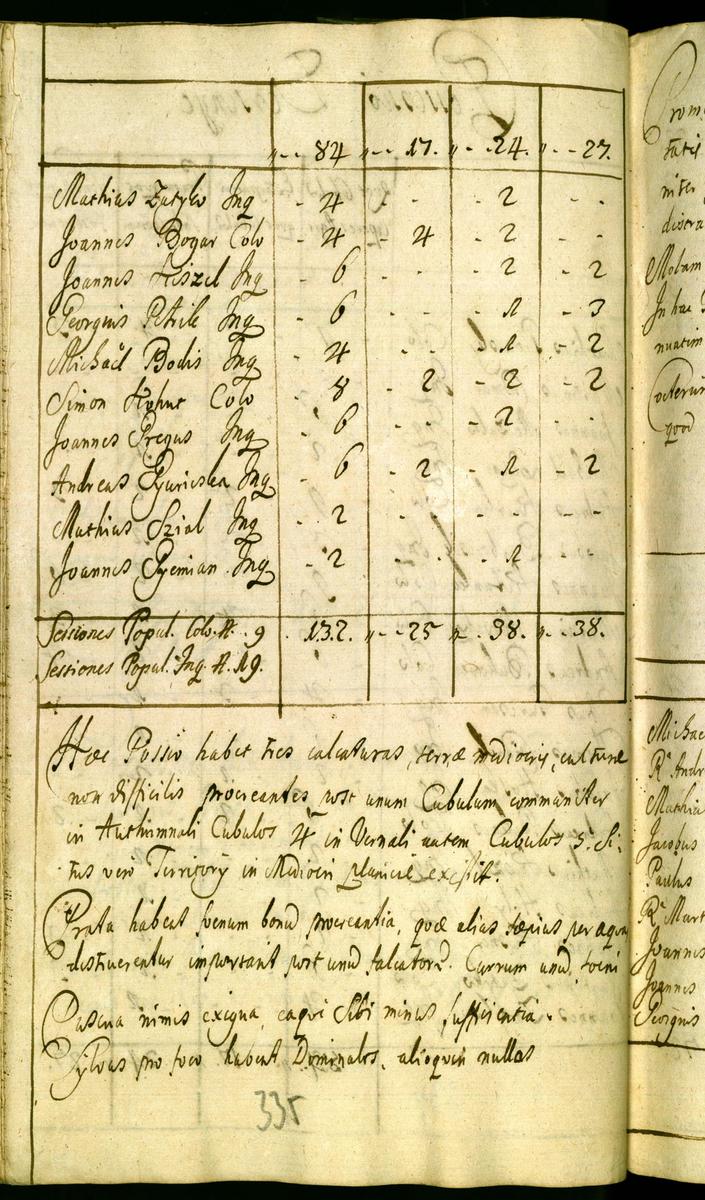 "-- 84 "-- 17. "-- 24. "-- 27.
Mathias Zatyko Inq - 4 - - - 2 - -
Joannes Bogar Colo - 4 - 4 - 2 - -
Joannes Hiszel Inq - 6 - - - 2 - 2
Georgius Petrik Inq - 6 - - - 1 - 3
Michaël Bodis Inq - 4 - - - 1 - 2
Simon Hohut Colo - 8 - 2 - 2 - 2
Joannes Pregus Inq - 6 - - - 2 - -
Andreas Gyuricska Inq - 6 - 2 - 1 - 2
Mathias Szial Inq - 2 - - - - - -
Joannes Gyemian Inq - 2 - - - 1 - -
Sessiones Popul. Colo. H. 9 . 132. "-- 25 "- 38. "-- 38.
Sessiones Popul. Inq. H. 19.
Hæc Possio habet tres calcaturas, terræ mediocris, culturæ
non difficilis procreantes post unum Cubulum communiter
in Authumnali Cubulos 4 in Vernali autem Cubulos 5. Si-
tus vero Territory in Mediocri planicie existit.
Prata habent foenum bonu procreantia, quæ alias sæpius per aquas
important post unu falcatore. Currum unu foeni
Pascua nimis exigua, eaqui Sibi minus sufficientia.
Sylvas pro foco habent Dominales, alioquin nullas
335
Prom
tatis
niter
distra
Metam
In hac
nuatim
Coeterum
quod
Michae
R. Andr
Mathia
Jacobus
Paulus
R. Mart
Joannes
Joannes
Georgius